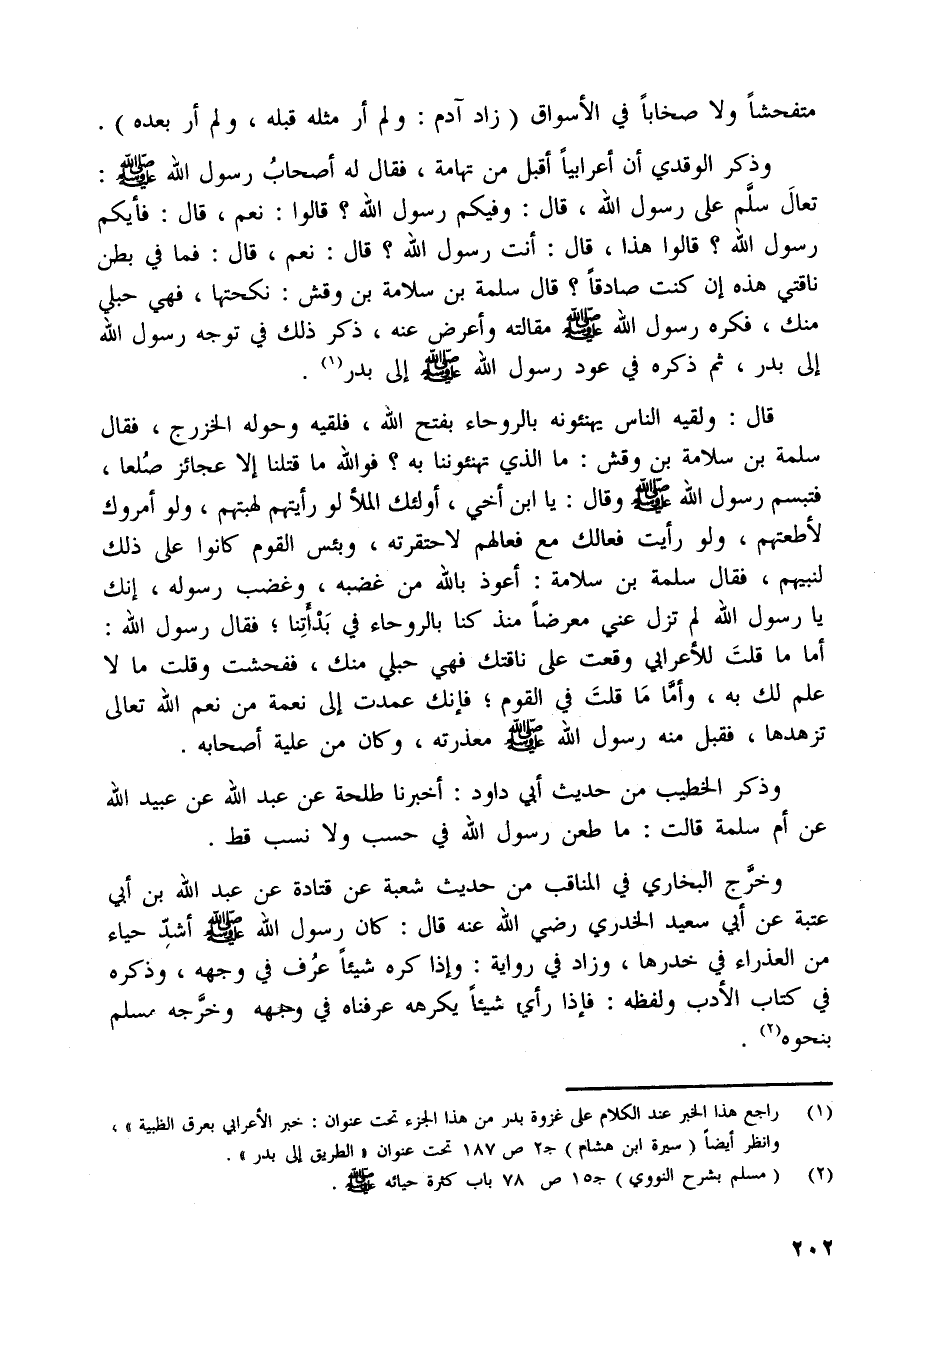 متفحشاً ولا صخاباً في الأسواق ( زاد آدم : ولم أر مثله قبله ، ولم أر بعده ) .
وذكر الوقدي أن أعرابياً أقبل من تهامة ، فقال له أصحابُ رسول الله ﷺ :
تعالَ سلَّم على رسول الله ، قال : وفيكم رسول الله ؟ قالوا : نعم ، قال : فأيكم
رسول الله ؟ قالوا هذا ، قال : أنت رسول الله ؟ قال : نعم ، قال : فما في بطن
ناقتي هذه إن كنت صادقاً ؟ قال سلمة بن سلامة بن وقش : نكحتها ، فهي حبلي
منك ، فكره رسول الله ﷺ مقالته وأعرض عنه ، ذكر ذلك في توجه رسول الله
إلى بدر ، ثم ذكره في عود رسول الله ﷺ إلى بدر(١) .
قال : ولقيه الناس يهنئونه بالروحاء بفتح الله ، فلقيه وحوله الخزرج ، فقال
سلمة بن سلامة بن وقش : ما الذي تهنئوننا به ؟ فوالله ما قتلنا إلا عجائز صُلعا ،
فتبسم رسول الله ﷺ وقال : يا ابن أخي ، أولئك الملأ لو رأيتهم لهبتهم ، ولو أمروك
لأطعتهم ، ولو رأيت فعالك مع فعالهم لاحتقرته ، وبئس القوم كانوا على ذلك
لنبيهم ، فقال سلمة بن سلامة : أعوذ بالله من غضبه ، وغضب رسوله ، إنك
يا رسول الله لم تزل عني معرضاً منذ كنا بالروحاء في بَدْأَتِنا ؛ فقال رسول الله :
أما ما قلتَ للأعرابي وقعت على ناقتك فهي حبلي منك ، ففحشت وقلت ما لا
علم لك به ، وأمَّا مَا قلتَ في القوم ؛ فإنك عمدت إلى نعمة من نعم الله تعالى
تزهدها ، فقبل منه رسول الله ﷺ معذرته ، وكان من علية أصحابه .
وذكر الخطيب من حديث أبي داود : أخبرنا طلحة عن عبد الله عن عبيد الله
عن أم سلمة قالت : ما طعن رسول الله في حسب ولا نسب قط .
وخرَّج البخاري في المناقب من حديث شعبة عن قتادة عن عبد الله بن أبي
عتبة عن أبي سعيد الخدري رضي الله عنه قال : كان رسول الله ﷺ أشدِّ حياء
من العذراء في خدرها ، وزاد في رواية : وإذا كره شيئاً عرُف في وجهه ، وذكره
في كتاب الأدب ولفظه : فإذا رأي شيئاً يكرهه عرفناه في وجهه وخرَّجه مسلم
بنحوه(٢) .
(١) راجع هذا الخبر عند الكلام على غزوة بدر من هذا الجزء تحت عنوان : خبر الأعرابي بعرق الظبية » ،
وانظر أيضاً ( سيرة ابن هشام ) جـ٢ ص ١٨٧ تحت عنوان « الطريق إلى بدر » .
(٢) ( مسلم بشرح النووي ) جـ١٥ ص ٧٨ باب كثرة حيائه ﷺ .
٢٠٢